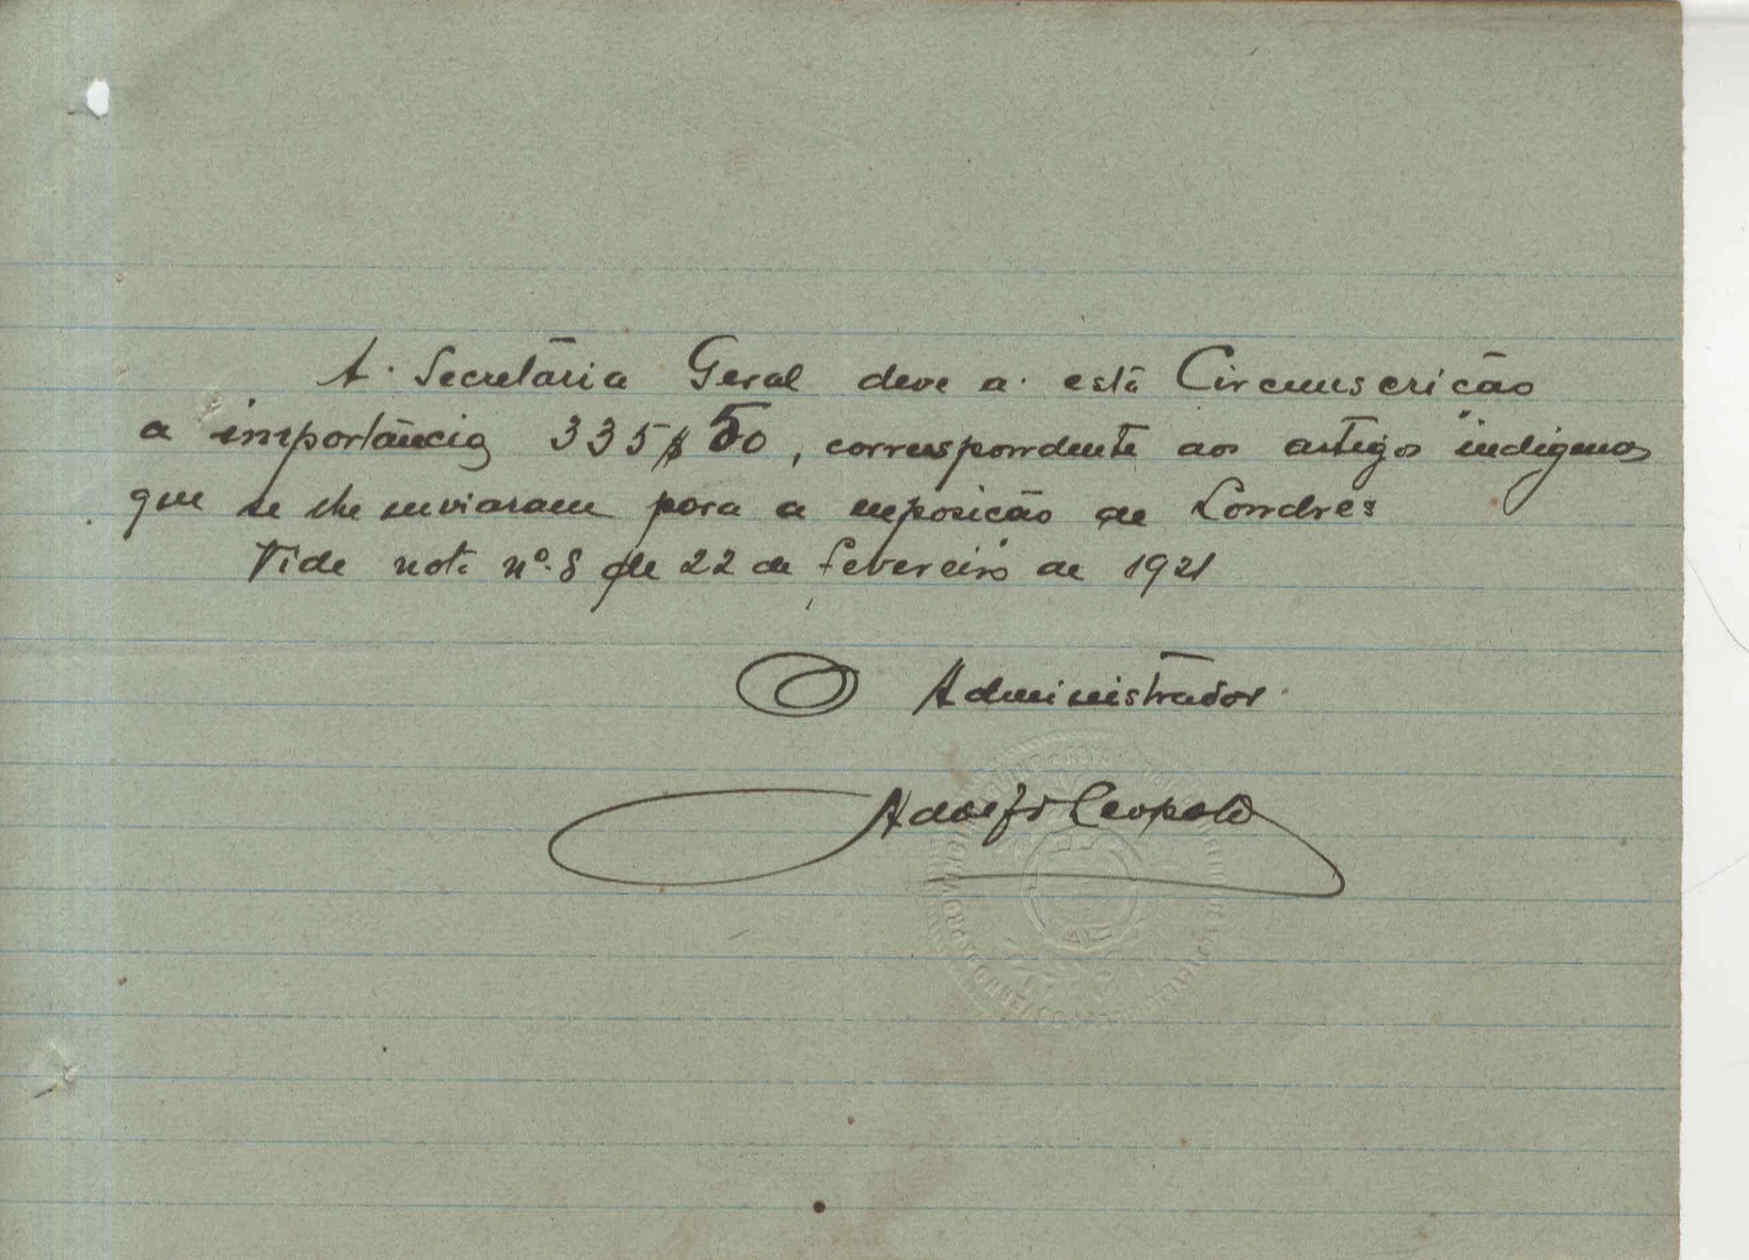 A Secretária Geral deve a está Circunscricão
a importância 335$50, correspondente aos artigos indigenas
que se lhe enviaram para a exposicão de Londres
Vide nota nº 8 de 22 de Fevereiro de 1921
O Administrador
Adolfo Leopoldo